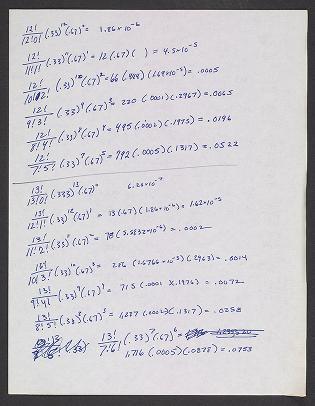 12!/12!0! (.33)^12 (.67)^0 = 1.86×10^-6
12!/11!1! (.33)^11 (.67)^1 = 12 (.67) ( ) = 4.5×10^-5
12!/10!2! (.33)^10 (.67)^2 = 66 (.449) (1.69×10^-5) = .0005
12!/9!3! (.33)^9 (.67)^3 220 (.0001)(.2967) = .0065
12!/8!4! (.33)^8 (.67)^4 = 495 (.0002)(.1975) = .0196
12!/7!5! (.33)^7 (.67)^5 = 792 (.0005)(.1317) = .0522
13!/13!0! (.333)^13 (.67)^0 6.20×10^-7
13!/12!1! (.33)^12 (.67)^1 = 13 (.67) (1.86×10^-6) = 1.62×10^-5
13!/11!2! (.33)^11 (.67)^2 = 78 (5.5832×10^-6) = .0002
13!/10!3! (.33)^10 (.67)^3 = 286 (1.6766×10^-5)(.2963) = .0014
13!/9!4! (.33)^9 (.67)^4 = 715 (.0001)(.1976) = .0072
13!/8!5! (.33)^8 (.67)^5 = 1,287 (.0002)(.1317) = .0258
13!/7!6! (.33)^7 (.67)^6 =
1,716 (.0005)(.0878) = .0753